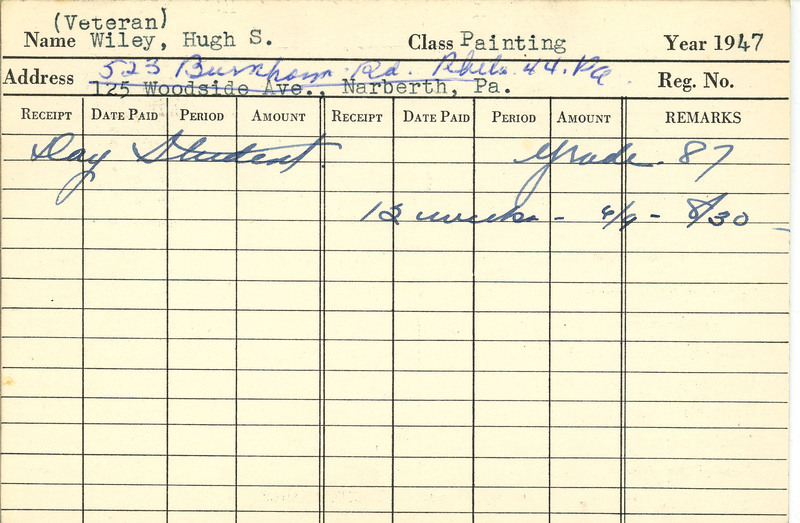 (Veteran)
Name Wiley, Hugh S. Class Painting Year 1947
Address 523 Burnham Rd. Phila. 44. Pa. Reg. No.
125 Woodside Ave., Narberth, Pa.
RECEIPT DATE PAID PERIOD AMOUNT RECEIPT DATE PAID PERIOD AMOUNT REMARKS
Day Student. Grade. 87
12 weeks - 6/9 - 8/30